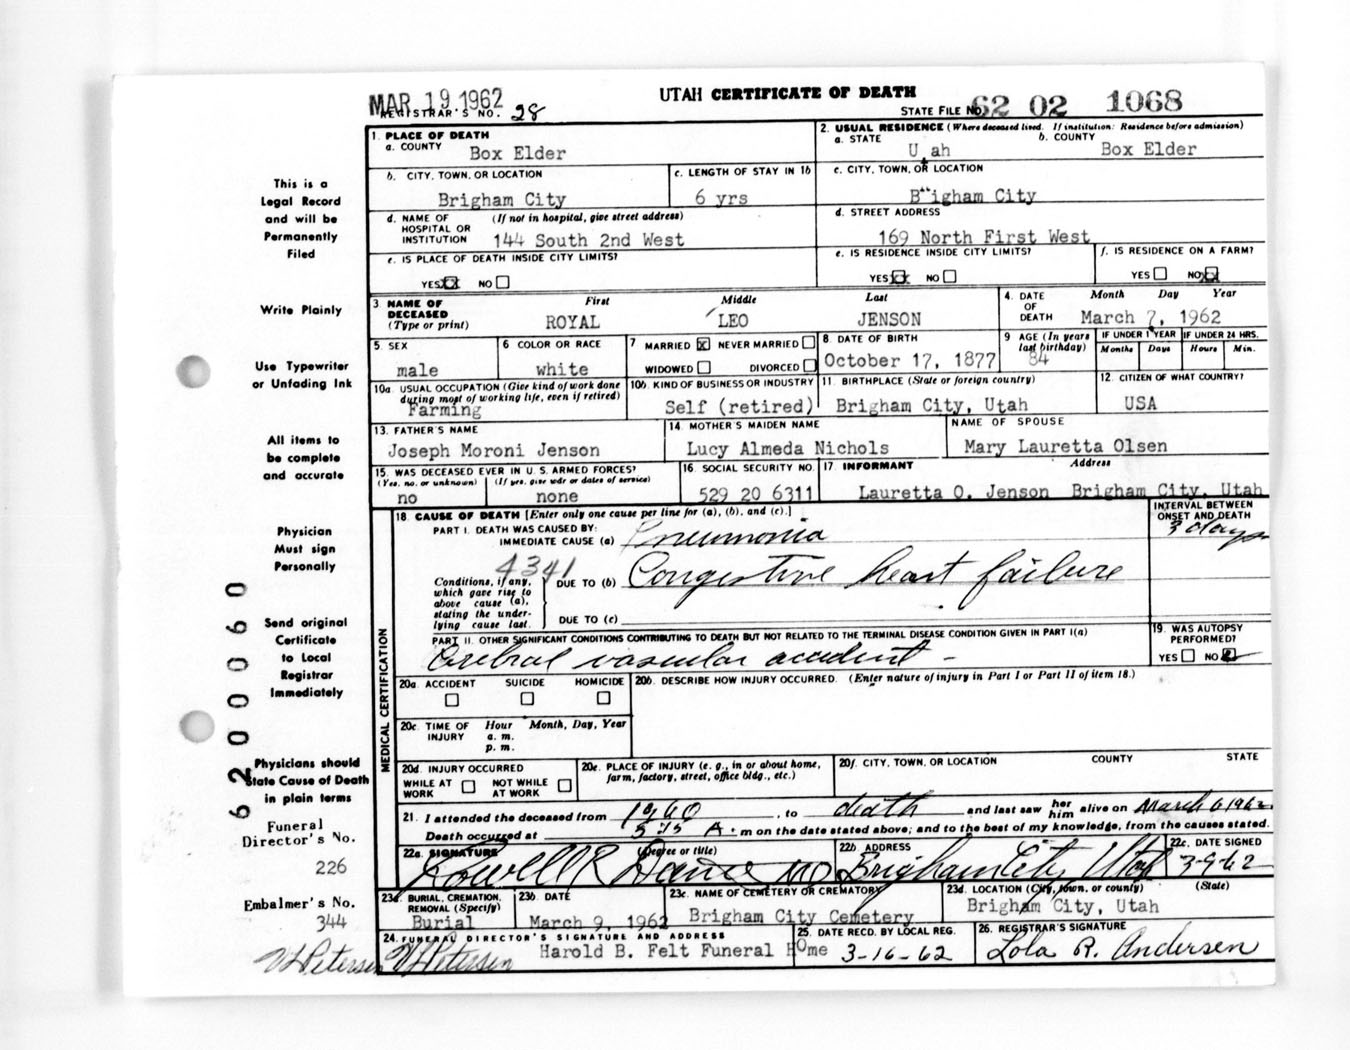 MAR 19.1962
UTAH CERTIFICATE OF DEATH
REGISTRAR'S NO. 28
STATE FILE NO. 62 02 1068
1. PLACE OF DEATH
a. COUNTY Box Elder
2. USUAL RESIDENCE (Where deceased lived. If institution: Residence before admission)
a. STATE Utah b. COUNTY Box Elder
b. CITY, TOWN, OR LOCATION Brigham City
c. LENGTH OF STAY IN 1b 6 yrs
c. CITY, TOWN, OR LOCATION Brigham City
d. NAME OF HOSPITAL OR INSTITUTION (If not in hospital, give street address) 144 South 2nd West
d. STREET ADDRESS 169 North First West
e. IS PLACE OF DEATH INSIDE CITY LIMITS?
YES XX NO
e. IS RESIDENCE INSIDE CITY LIMITS?
YES XX NO
f. IS RESIDENCE ON A FARM?
YES NO XX
3. NAME OF DECEASED (Type or print)
First Middle Last
ROYAL LEO JENSON
4. DATE OF DEATH Month Day Year
March 7, 1962
5. SEX male
6 COLOR OR RACE white
7 MARRIED X NEVER MARRIED
WIDOWED DIVORCED
8. DATE OF BIRTH October 17, 1877
9 AGE (In years last birthday) 84
IF UNDER 1 YEAR Months Days
IF UNDER 24 HRS. Hours Min.
10a. USUAL OCCUPATION (Give kind of work done during most of working life, even if retired) Farming
10b. KIND OF BUSINESS OR INDUSTRY Self (retired)
11. BIRTHPLACE (State or foreign country) Brigham City, Utah
12. CITIZEN OF WHAT COUNTRY? USA
13. FATHER'S NAME Joseph Moroni Jenson
14. MOTHER'S MAIDEN NAME Lucy Almeda Nichols
NAME OF SPOUSE Mary Lauretta Olsen
15. WAS DECEASED EVER IN U. S. ARMED FORCES?
(Yes, no, or unknown) (If yes, give war or dates of service)
no none
16. SOCIAL SECURITY NO. 529 20 6311
17. INFORMANT Address
Lauretta O. Jenson Brigham City, Utah
18. CAUSE OF DEATH [Enter only one cause per line for (a), (b), and (c).]
INTERVAL BETWEEN ONSET AND DEATH
PART I. DEATH WAS CAUSED BY:
IMMEDIATE CAUSE (a) Pneumonia 3 days
4341
Conditions, if any, which gave rise to above cause (a), stating the underlying cause last.
DUE TO (b) Congestive heart failure
DUE TO (c)
PART II. OTHER SIGNIFICANT CONDITIONS CONTRIBUTING TO DEATH BUT NOT RELATED TO THE TERMINAL DISEASE CONDITION GIVEN IN PART I(a)
Cerebral vascular accident -
19. WAS AUTOPSY PERFORMED?
YES NO
20a. ACCIDENT SUICIDE HOMICIDE
20b. DESCRIBE HOW INJURY OCCURRED. (Enter nature of injury in Part I or Part II of item 18.)
20c. TIME OF INJURY Hour Month, Day, Year
a. m.
p. m.
20d. INJURY OCCURRED
WHILE AT WORK NOT WHILE AT WORK
20e. PLACE OF INJURY (e. g., in or about home, farm, factory, street, office bldg., etc.)
20f. CITY, TOWN, OR LOCATION COUNTY STATE
21. I attended the deceased from 1960, to death and last saw her him alive on March 6 1962
Death occurred at 5:15 A. m on the date stated above; and to the best of my knowledge, from the causes stated.
22a. SIGNATURE (Degree or title)
22b. ADDRESS Brigham City Utah
22c. DATE SIGNED 3-9-62
23a. BURIAL, CREMATION, REMOVAL (Specify) Burial
23b. DATE March 9, 1962
23c. NAME OF CEMETERY OR CREMATORY Brigham City Cemetery
23d. LOCATION (City, town, or county) (State)
Brigham City, Utah
24. FUNERAL DIRECTOR'S SIGNATURE AND ADDRESS
Harold B. Felt Funeral Home
25. DATE RECD. BY LOCAL REG. 3-16-62
26. REGISTRAR'S SIGNATURE
Lola R. Andersen
MEDICAL CERTIFICATION
This is a
Legal Record
and will be
Permanently
Filed
Write Plainly
Use Typewriter
or Unfading Ink
All items to
be complete
and accurate
Physician
Must sign
Personally
Send original
Certificate
to Local
Registrar
Immediately
Physicians should
State Cause of Death
in plain terms
Funeral
Director's No.
226
Embalmer's No.
344
62 00060